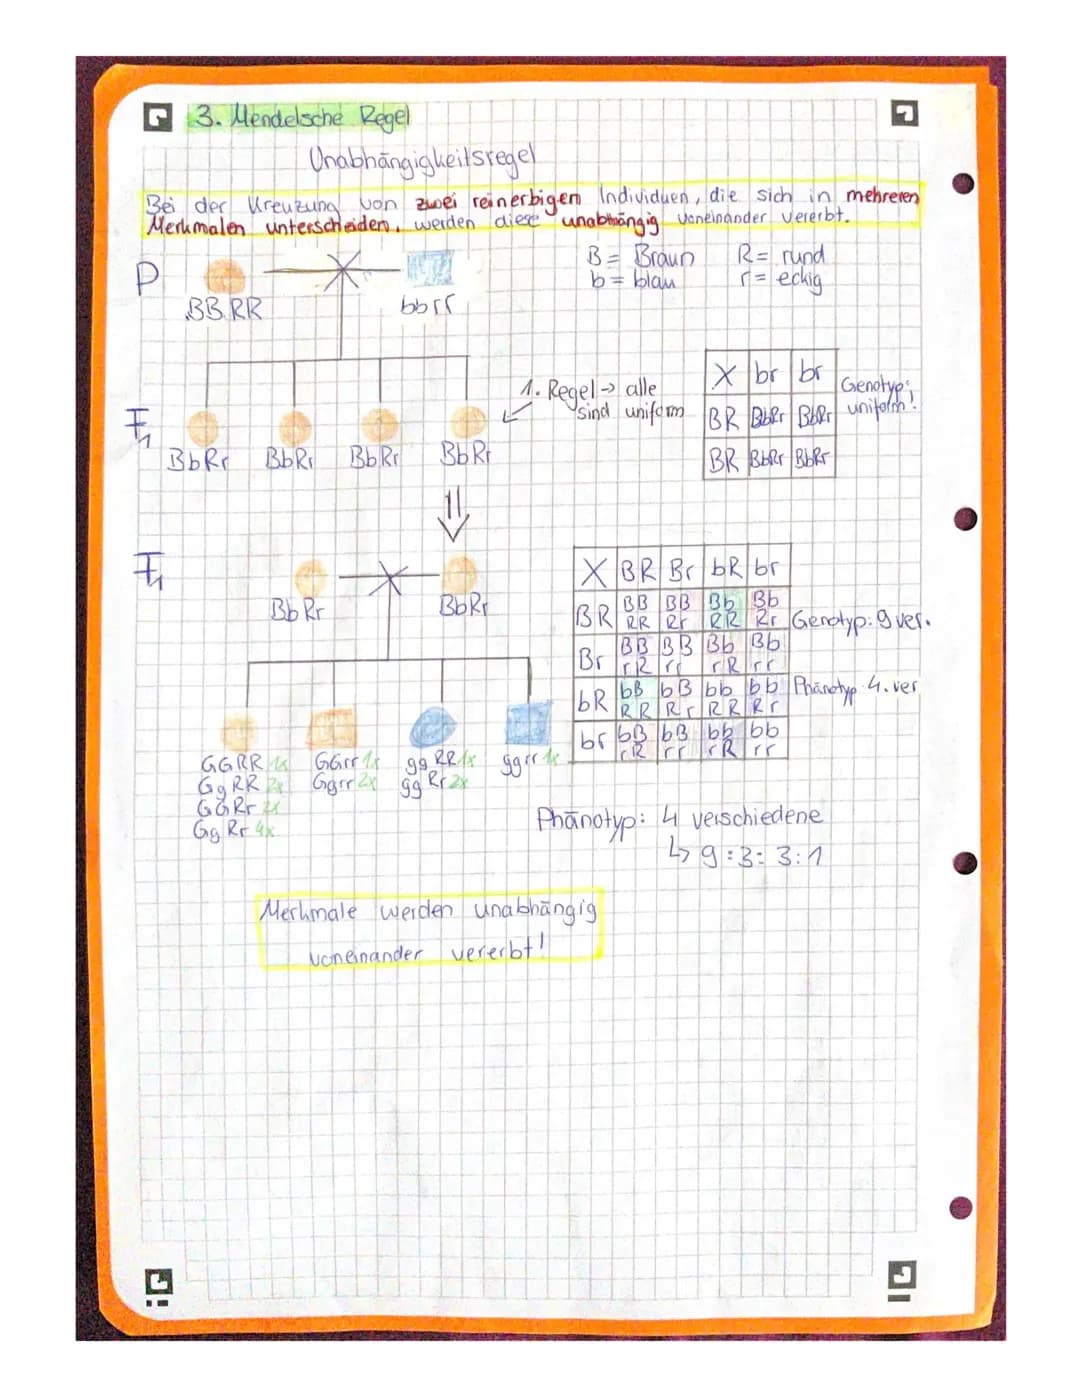 3. Mendelsche Regel
Unabhängigkeitsregel
Bei der Kreuzung von zwei reinerbigen Individuen, die sich in mehreren
Merkmalen unterscheiden, werden diese unabhängig voneinander vererbt.
B = Braun R = rund
b = blau r = eckig
P
BB RR bbrr
1. Regel → alle
sind uniform
X br br
BR BbRr BbRr
BR BbRr BbRr
Genotyp:
uniform!
F1
BbRr BbRr BbRr BbRr
F1
BbRr BbRr
X BR Br bR br
BR BB RR BB Rr Bb RR Bb Rr
Br BB rR BB rr Bb rR Bb rr
bR bB RR bB Rr bb RR bb Rr
br bB rR bB rr bb rR bb rr
Genotyp: 9 ver.
Phänotyp 4. ver
GGRR 1x GGrr 1x gg RR 1x ggrr 1x
GgRR 2x Ggrr 2x gg Rr 2x
GGRr 2x
Gg Rr 4x
Phänotyp: 4 verschiedene
↳ 9:3:3:1
Merkmale werden unabhängig
voneinander vererbt!